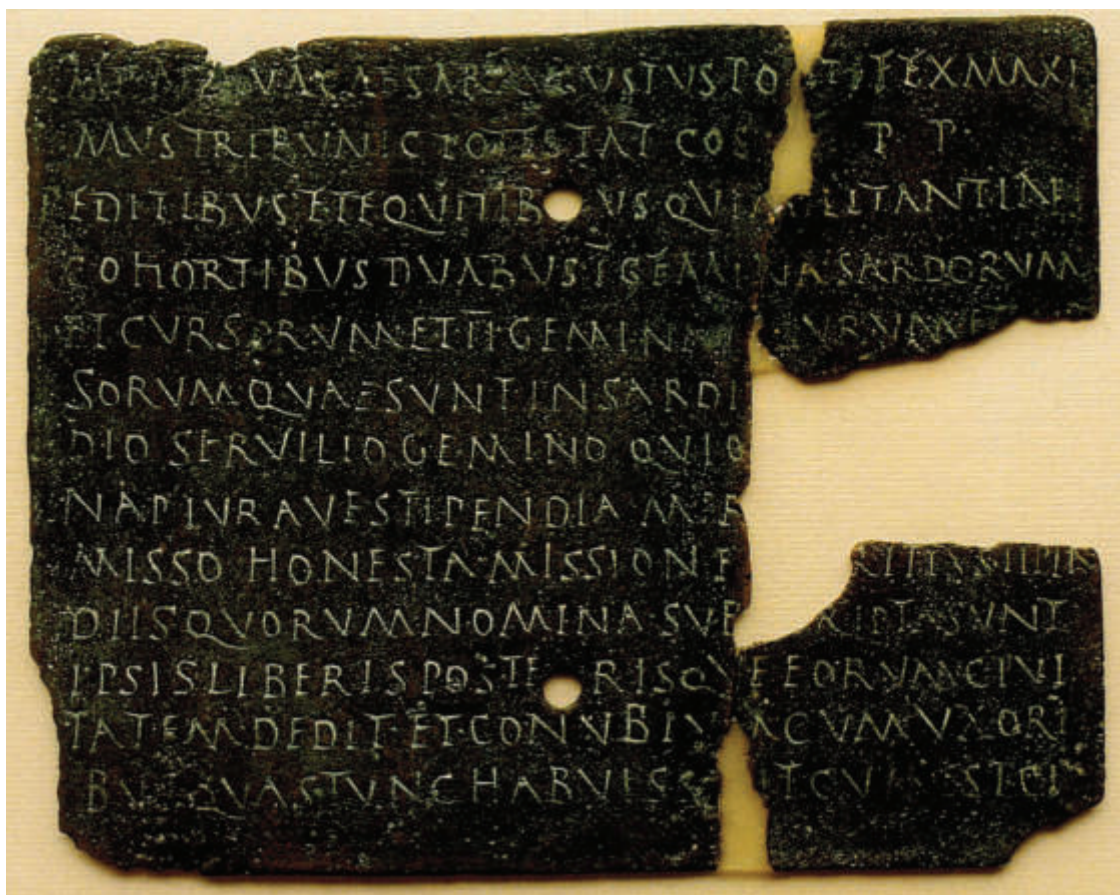 NERVA CAESAR AVGVSTVS PO TIFEX MAXI
MVS TRIBVNIC POTESTAT COS P P
PEDITIBVS ET EQVITIB VS QVI MILITANT IN
COHORTIBVS DVABVS I GEMINA SARDORVM
ET CVRSORVM ET II GEMINA VRVM ET
SORVM QVAE SVNT IN SARDI
DIO SERVILIO GEMINO QVI Q
NA PLVRAVE STIPENDIA MER
MISSO HONESTA MISSIONE
DIIS QVORVM NOMINA SVB RIPTA SVNT
IPSIS LIBERIS POSTE RISQVE EORVM CIVI
TATEM DEDIT ET CONVBIVM CVM VXORI
BVS QVAS TVNC HABVISS